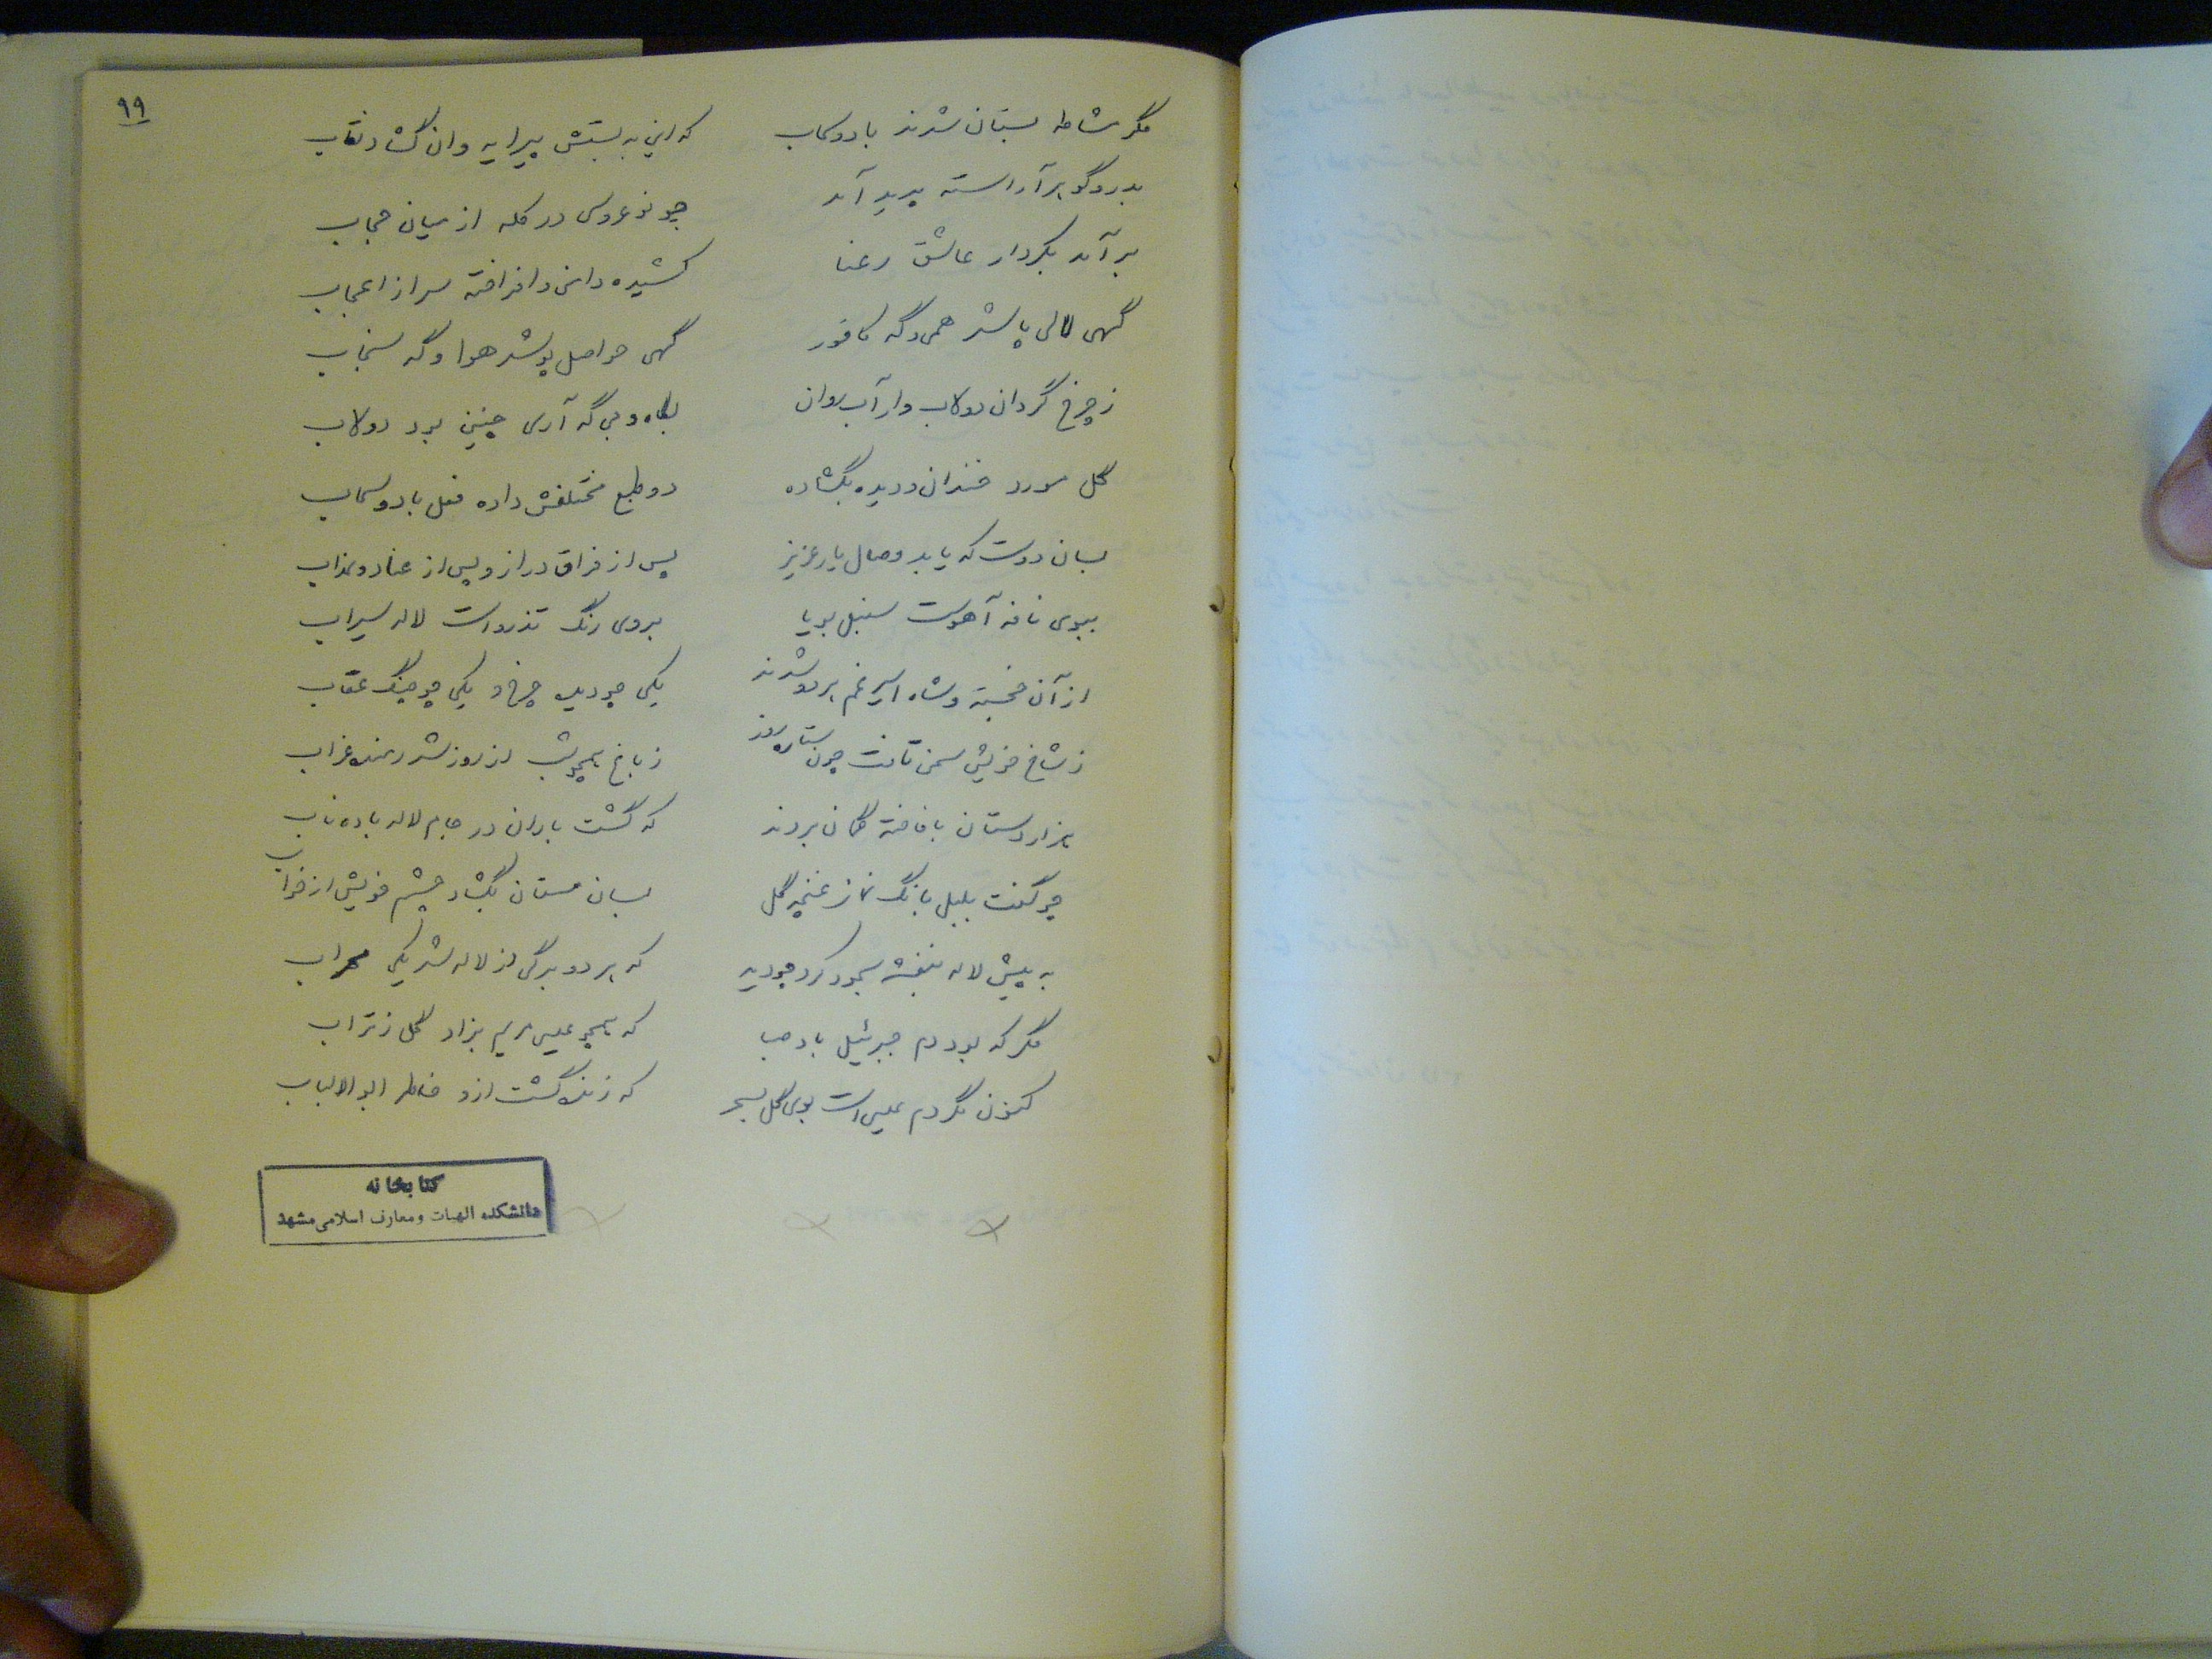 ۹۹
مگر مشاطه بستان شدند باد و سحاب که این به بستش پیرایه وان گشاد نقاب
بدر و گوهر آراسته پدید آمد چو نو عروسی در کله از میان حجاب
برآمد بکردار عاشق رعنا کشیده دامن و افراخته سر از اعجاب
گهی لالی پاشد همی و گه کافور گهی حواصل پوشد هوا و گه سنجاب
ز چرخ گردان دولاب وار آب روان بگاه و بی گه آری چنین بود دولاب
گل مورد خندان و دیده بگشاده دو طبع مختلفش داده فعل باد و سحاب
بسان دوست که یابد وصال یار عزیز پس از فراق دراز و پس از عنا و عذاب
ببوی نافه آهوست سنبل بویا بروی رنگ تذرو است لاله سیراب
از آن خجسته و شاه اسپرغم هر دو شدند یکی چو دیده چرغ و یکی چو چنگ عقاب
ز شاخ خویش سمن تافت چون ستاره روز ز باغ همچو شب از روز شد رمنده غراب
هزار دستان با فاخته گمان بردند که گشت باران در جام لاله باده ناب
چو گفت بلبل بانگ نماز غنچه گل بسان مستان بگشاد چشم خویش از خواب
به پیش لاله بنفشه سجود کرد چو دید که هر دو برگی از لاله شد یکی محراب
مگر که بود دم جبرئیل باد صبا که همچو عیسی مریم بزاد گل ز تراب
کنون مگر دم عیسی است بوی گل بسحر که زنده گشت ازو خاطر اولوالالباب
کتابخانه
دانشکده الهیات و معارف اسلامی مشهد